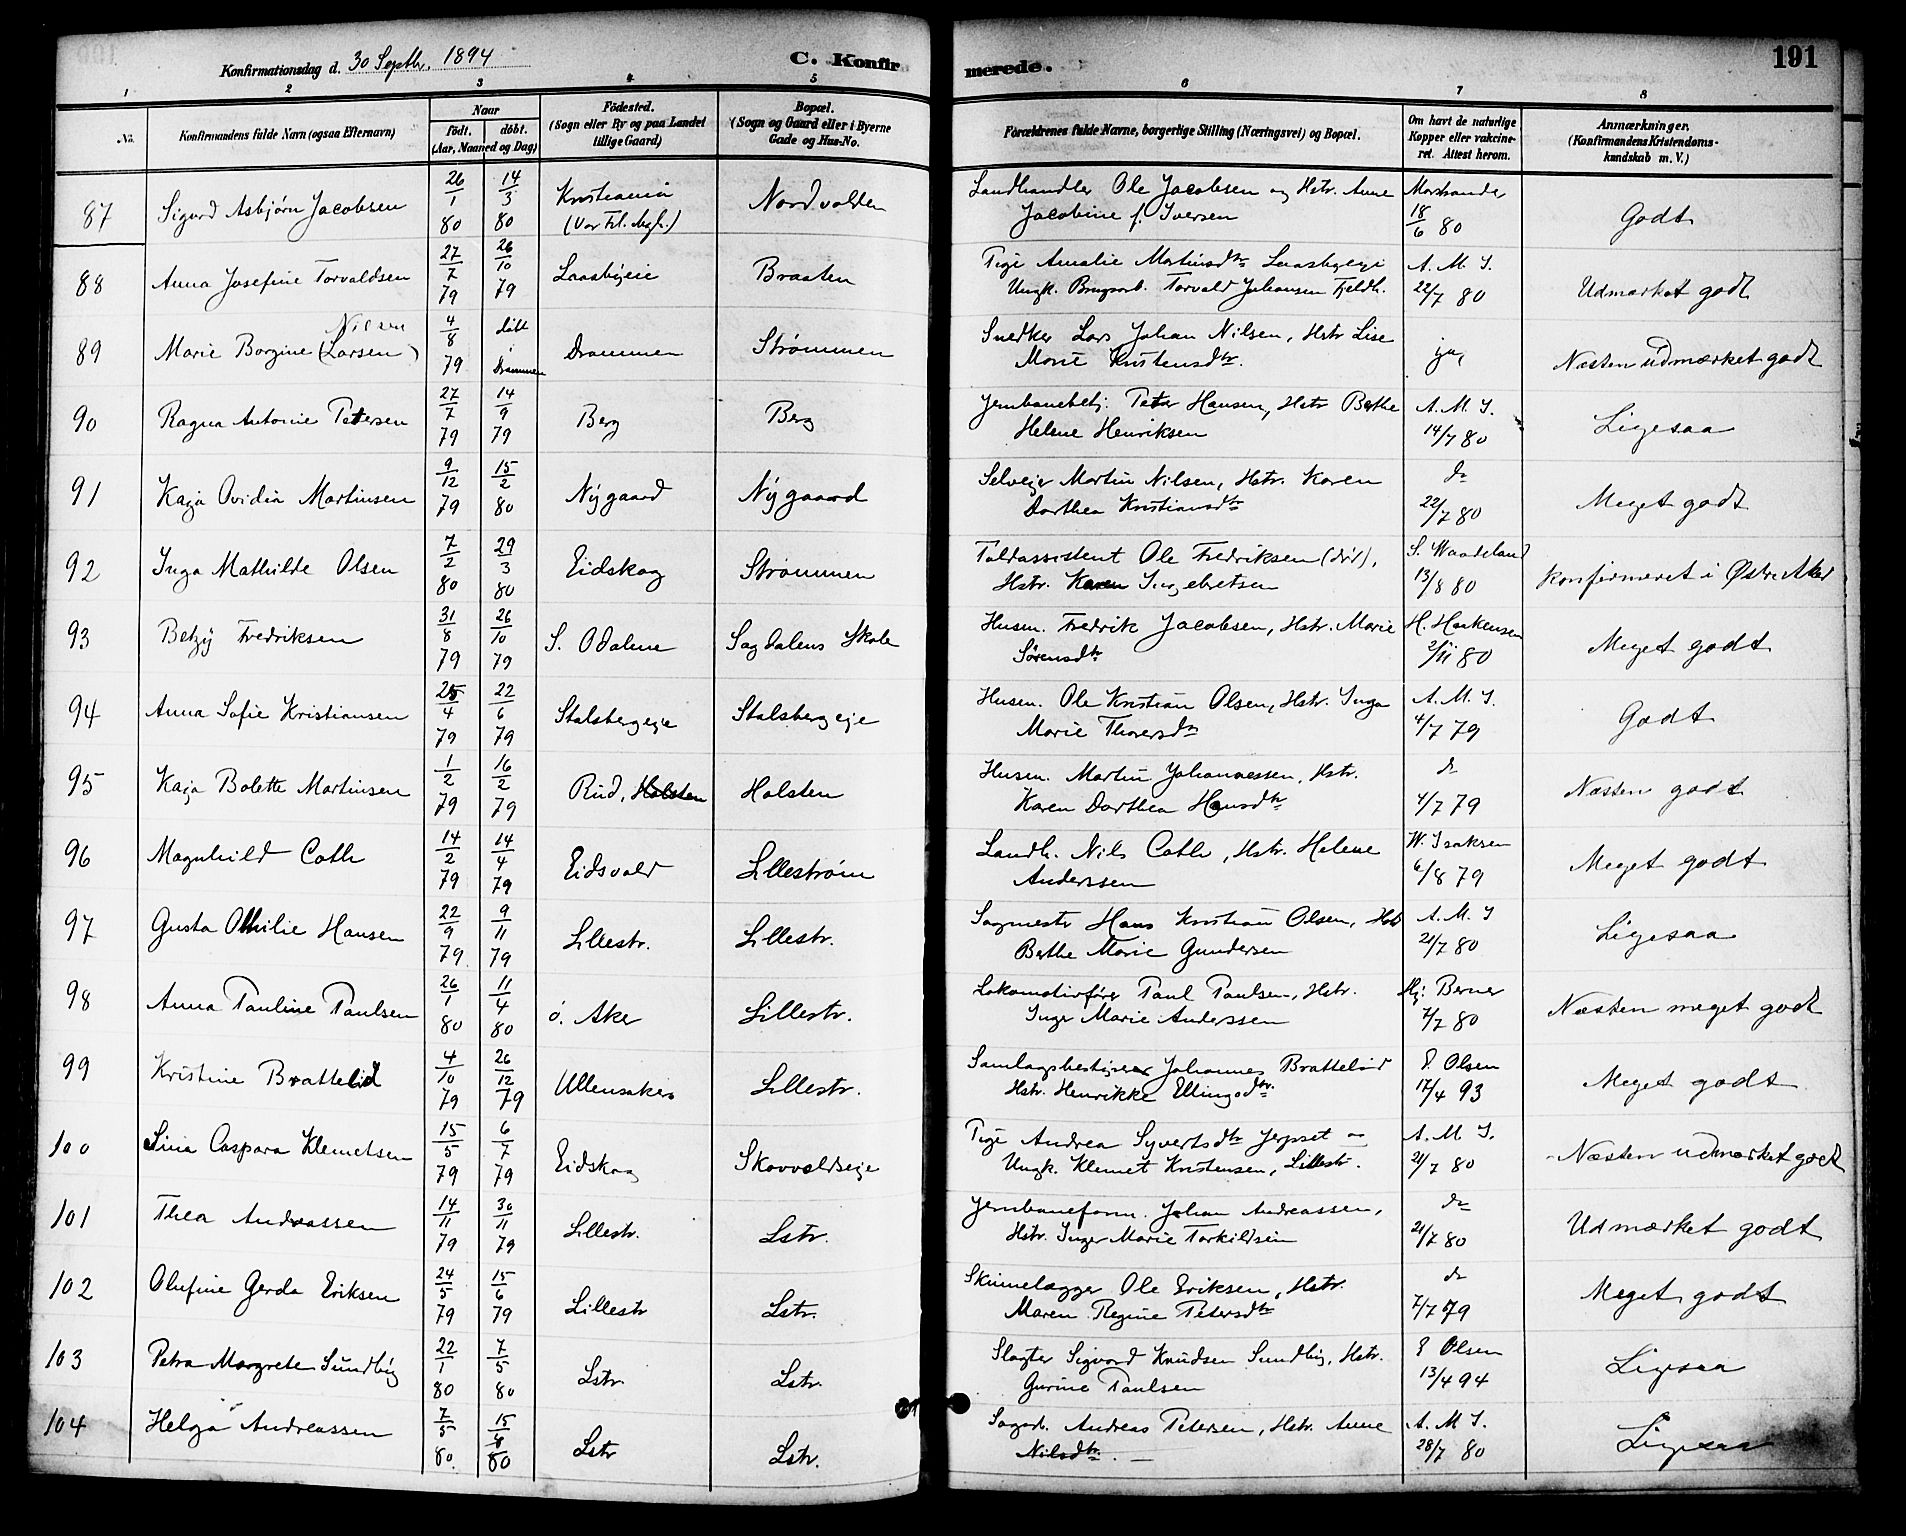 Konfirmationsdag d. 30 Septbr. 1894 C. Konfirmerede. 191
1 2 3 4 5 6 7 8
No. Konfirmandens fulde Navn (ogsaa Efternavn) Naar født. døbt. (Aar, Maaned og Dag) Födested. (Sogn eller By og paa Landet tillige Gaard) Bopæl. (Sogn og Gaard eller i Byerne Gade og Hus-No. Forældrenes fulde Navne, borgerlige Stilling (Næringsvei) og Bopæl. Om havt de naturlige Kopper eller vakcineret. Attest herom. Anmærkninger. (Konfirmandens Kristendomskundskab m. V.)
87 Sigurd Asbjørn Jacobsen 26/1 80 14/3 80 Kristiania (Vor Fr. Mgh.) Nordvolden Landhandler Ole Jacobsen og Hstr. Anne Jacobine f. Iversen 18/6 80 Godt
88 Anna Josefine Torvaldsen 27/7 79 26/10 79 Laasbyeie Braaten Pige Amalie Martinsdtr Laasbyeje Ungk. Brugsarb. Torvald Johansen Fjeldh. A. M. I. 22/7 80 Udmærket godt
89 Marie Borgine (Larsen) Nilsen 4/8 79 døbt i Drammen Drammen Strømmen Snedker Lars Johan Nilsen, Hstr Lise Marie Kristensdtr. ja, Næsten udmærket godt
90 Ragna Antonie Petersen 27/7 79 14/9 79 Berg Berg Jernbanebetj. Peter Hansen, Hstr Berthe Helene Henriksen A. M. I. 14/7 80 Ligesaa
91 Kaja Ovidia Martinsen 9/12 79 15/2 80 Nygaard Nygaard Selvejer Martin Nilsen, Hstr. Karen Dorthea Kristiansdtr do 22/7 80 Meget godt
92 Inga Mathilde Olsen 7/2 80 29/3 80 Eidskog Strømmen Toldassistent Ole Fredriksen (død), Hstr. Karen Ingebretsen S. Waadeland 13/8 80 Konfirmeret i Østre Aker
93 Betzy Fredriksen 31/8 79 26/10 79 S. Odalen Sagdalens Skole Husm. Fredrik Jacobsen, Hstr. Marie Sørensdtr 2/11 80 Meget godt
94 Anna Sofie Kristiansen 25/4 79 22/6 79 Stalsbergeje Stalsbergeje Husm. Ole Kristian Olsen, Hstr. Inga Marie Thoresdtr A. M. I. 4/7 79 Godt
95 Kaja Bolette Martinsen 1/2 79 16/2 79 Rud, Holsten Holsten Husm. Martin Johannessen, Hstr. Karen Dorthea Hansdtr do 4/7 79 Næsten godt
96 Magnhild Coth 14/2 79 14/4 79 Eidsvold Lillestrøm Landh. Nils Coth, Hstr. Helene Anderssen W. Isaksen 6/8 79 Meget godt
97 Gusta Othilie Hansen 22/9 79 9/11 79 Lillestr. Lillestr. Sagmester Hans Kristian Olsen, Hstr Berthe Marie Gundersen A. M. I 21/7 80 Ligesaa
98 Anna Pauline Paulsen 26/1 80 11/4 80 Ö. Aker Lillestr. Lokomotivfører Paul Paulsen, Hstr. Inger Marie Anderssen Hj. Berner 7/7 80 Næsten meget godt
99 Kristine Brattelid 4/10 79 26/12 79 Ullensaker Lillestr. Samlagsbestyrer Johannes Brattelid Hstr. Henrikke Ellingsdtr. E. Olsen 17/4 93 Meget godt
100 Sina Caspara Klemetsen 15/5 79 6/7 79 Eidskog Skovvoldseje Pige Andrea Syvertsdtr Jerpset – Ungk. Klemet Kristensen, Lillestr. A. M I. 21/7 80 Næsten udmærket godt
101 Thea Andreassen 14/11 79 30/11 79 Lillestr. Lstr. Jernbaneform. Johan Andreassen, Hstr. Inger Marie Torkildsen do 21/7 80 Udmærket godt
102 Olufine Gerda Eriksen 24/5 79 15/6 79 Lillestr Lstr. Skinnelægger Ole Eriksen, Hstr. Maren Regine Petersdtr do 7/7 79 Meget godt
103 Petra Margrete Sundby 22/1 80 7/5 80 Lstr. Lstr. Slagter Sigvard Knudsen Sundby, Hstr. Gurine Paulsen E Olsen 13/4 94 Ligesaa
104 Helga Andreassen 7/5 80 15/8 80 Lstr Lstr. Sagarb. Andreas Petersen, Hstr. Anne Nilsdtr. – A. M I. 28/7 80 Ligesaa